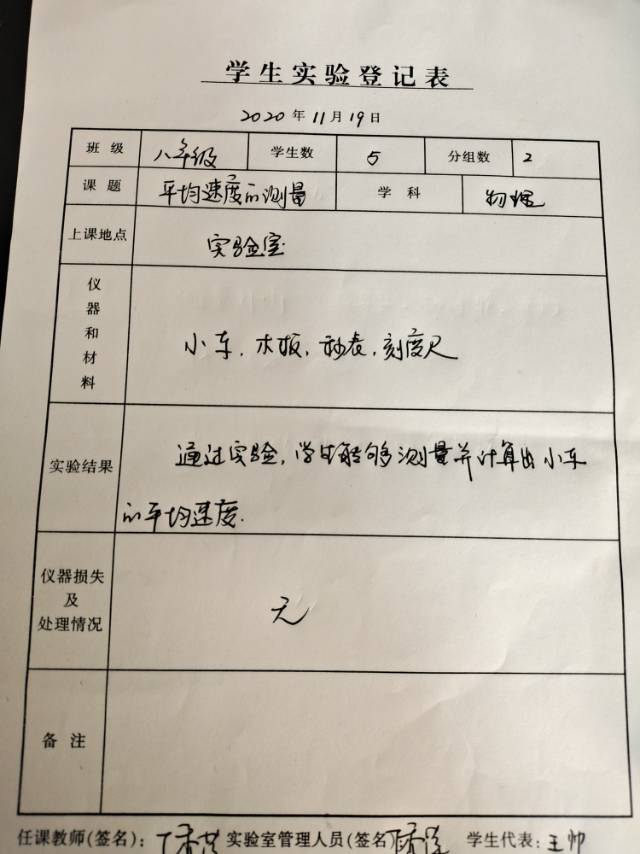 学生实验登记表
2020年11月19日
班级 八年级 学生数 5 分组数 2
课题 平均速度的测量 学科 物理
上课地点 实验室
仪器和材料 小车，木板，秒表，刻度尺
实验结果 通过实验，学生能够测量并计算出小车
的平均速度.
仪器损失
及
处理情况 无
备注
任课教师(签名)： 实验室管理人员(签名 学生代表：王帅